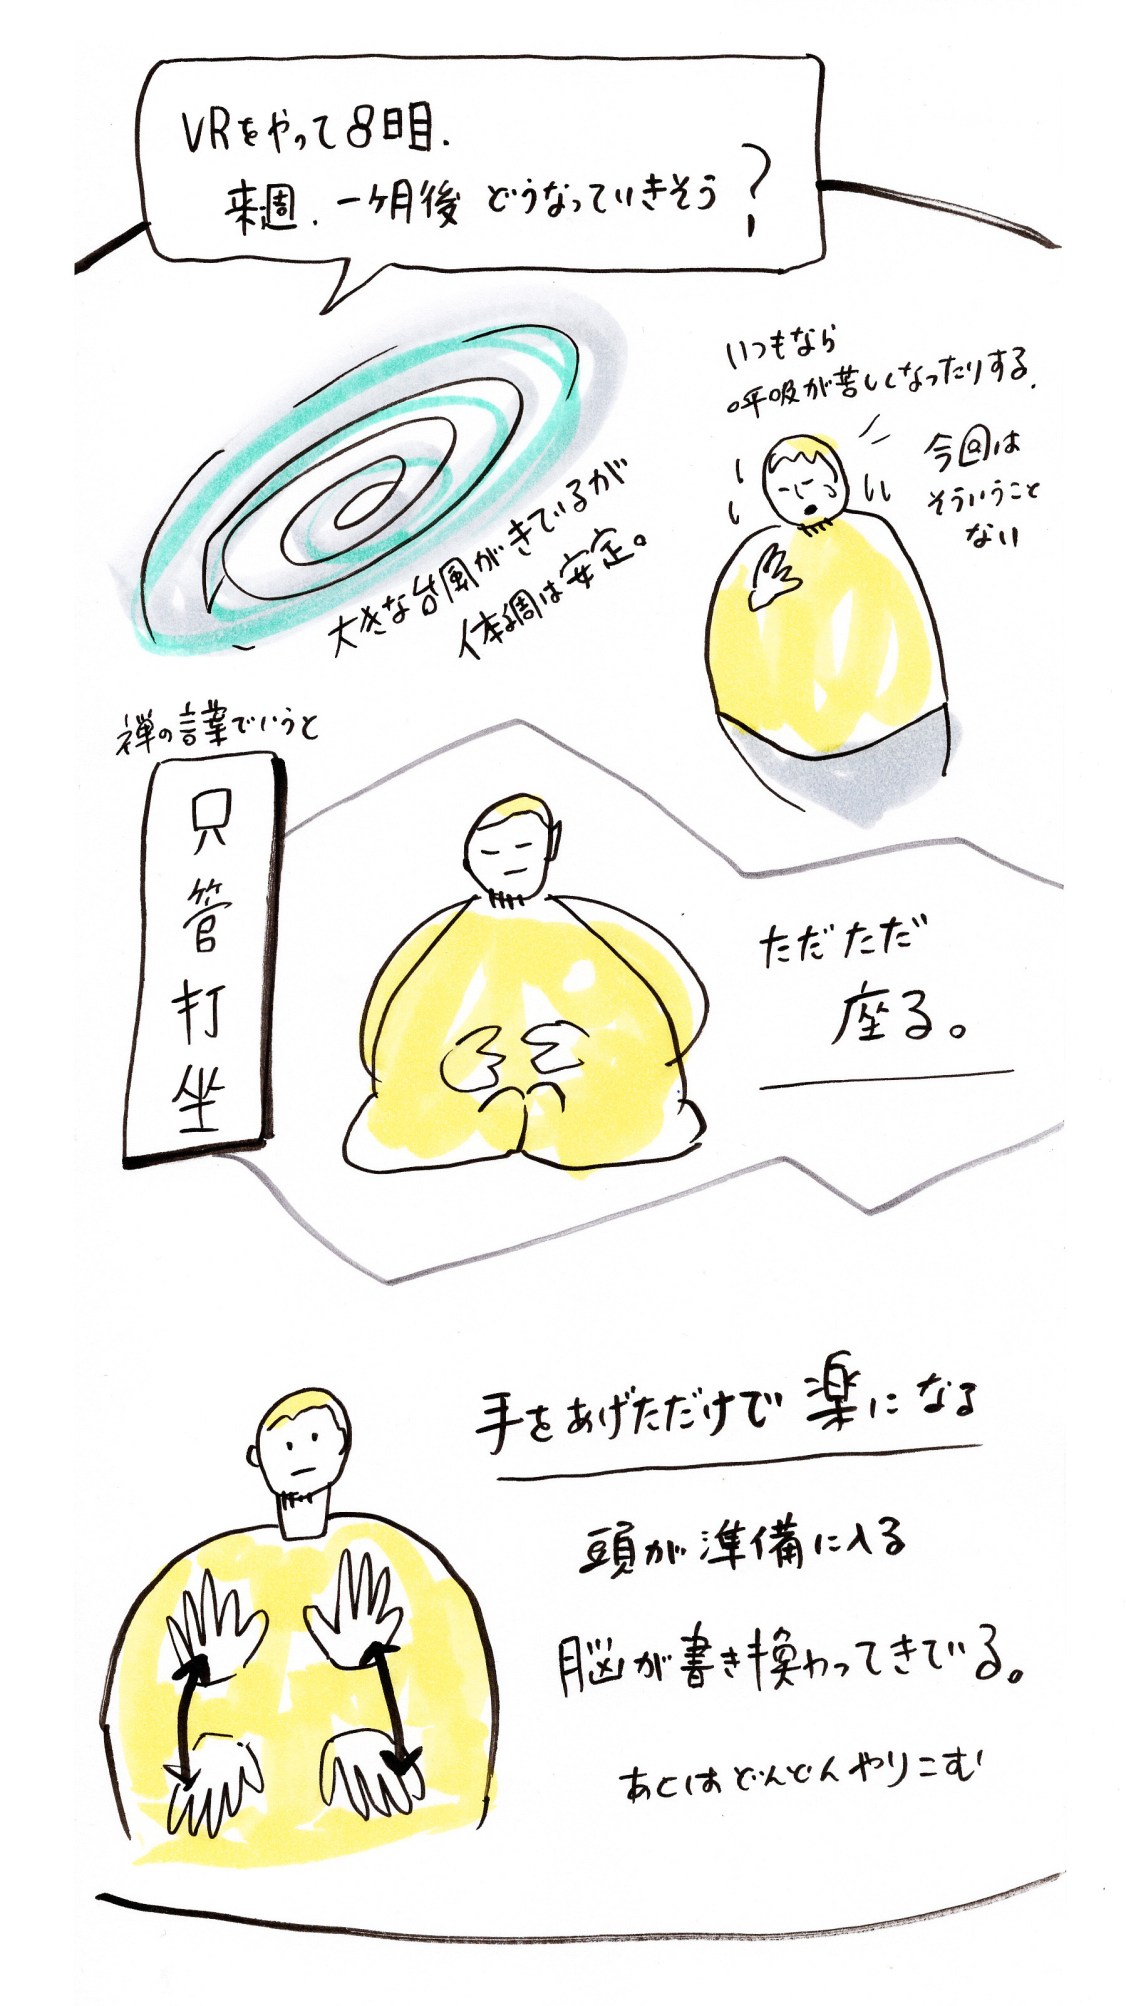 VRをやって8日目.
来週.一ヶ月後 どうなっていきそう?
いつもなら
呼吸が苦しくなったりする.
今回は
そういうこと
ない
大きな台風がきているが
体調は安定。
禅の言葉でいうと
只管打坐
ただただ
座る。
手をあげただけで楽になる
頭が準備に入る
脳が書き換わってきている。
あとはどんどんやりこむ